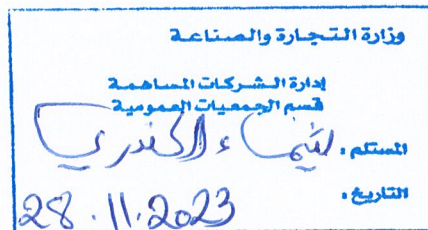 وزارة التجارة والصناعة
إدارة الشركات المساهمة
قسم الجمعيات العمومية
المستلم : شيماء الكندري
التاريخ :
28.11.2023